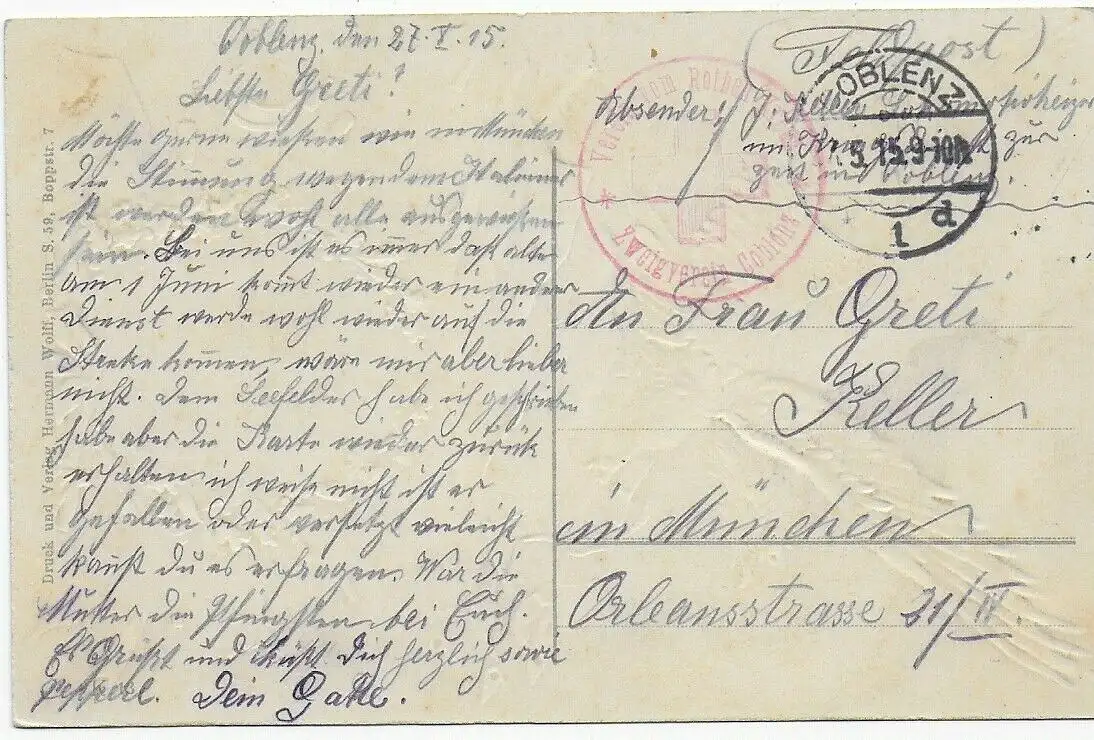 Coblenz, den 27. V. 15.
Liebste Greti!
Möchte gerne wissen wie in München
die Stimmung wegen dem Italiener
ist werden wohl alle
sein. Bei uns ist es immer das alte
am 1 Juni kommt wieder ein andrer
Dienst werde wohl wieder auf die
Streke kommen, wäre mir aber lieber
nicht. Dem Seefelder habe ich geschrieben
habe aber die Karte wieder zurück
erhalten ich weiß nicht ist er
gefallen oder versetzt vieleicht
kannst du es erfragen. War die
Mutter die Pfingsten bei Euch.
Es Grüßt und Küßt Dich herzlich sowie
Dein Gatte.
Druck und Verlag Hermann Wolff, Berlin S. 59, Boppstr. 7
(Feldpost)
Absender: J. Keller
im
zur
Coblenz.
Verein vom Rothen
* Zweigverein Coblenz
COBLENZ
5.15.9-10V
1 d
An Frau Greti
Keller
in München
Orleansstrasse 21/IV.